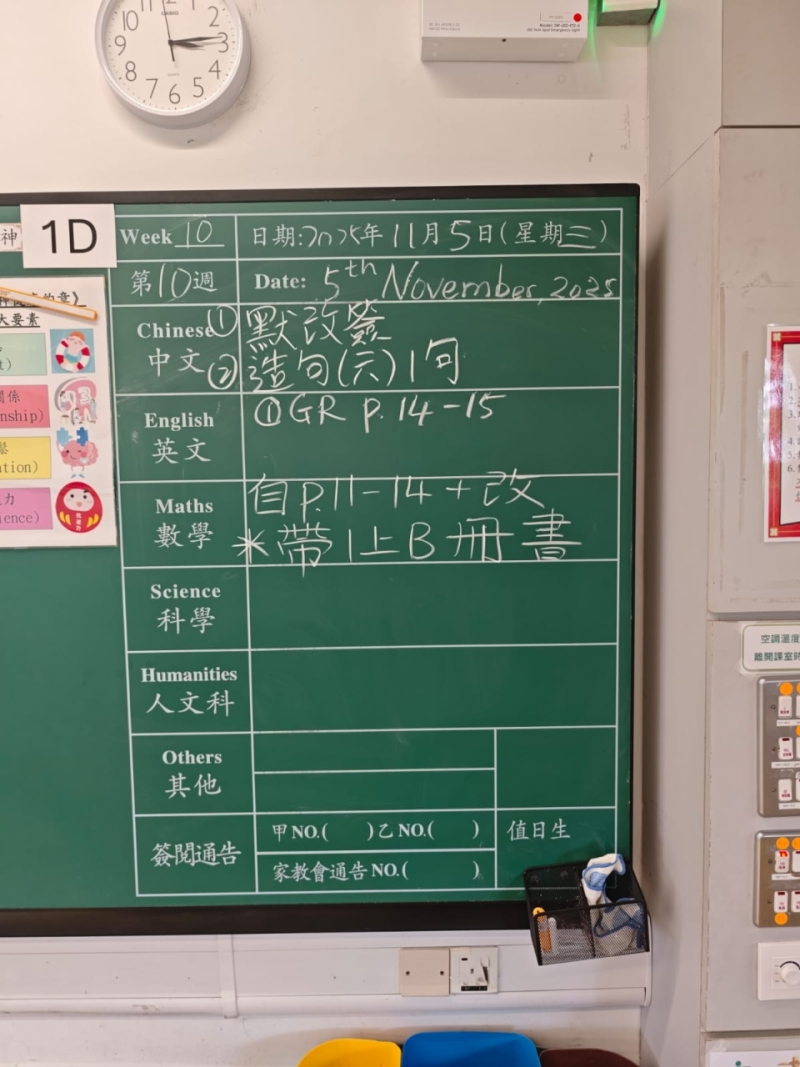 12
11
10
9
8
7
6
5
4
3
2
CASIO
神
1D
Week 10
日期:2025年11月5日(星期三)
第10週
Date: 5th November, 2025
大要素
Chinese
中文
① 默改簽
② 造句(六)1句
English
英文
① GR P.14-15
Maths
數學
自P.11-14+改
*帶1上B冊書
Science
科學
Humanities
人文科
Others
其他
簽閱通告
甲NO.( )乙NO.( )
家教會通告NO.( )
值日生
關係
nship)
力
ience)
空調溫度
離開課室時